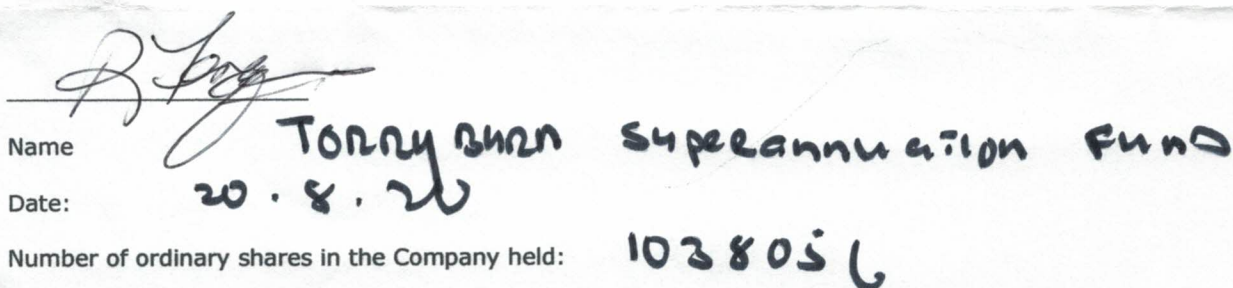 Name TORRYBURN SUPERANNUATION FUND
Date: 20.8.20
Number of ordinary shares in the Company held: 1038056